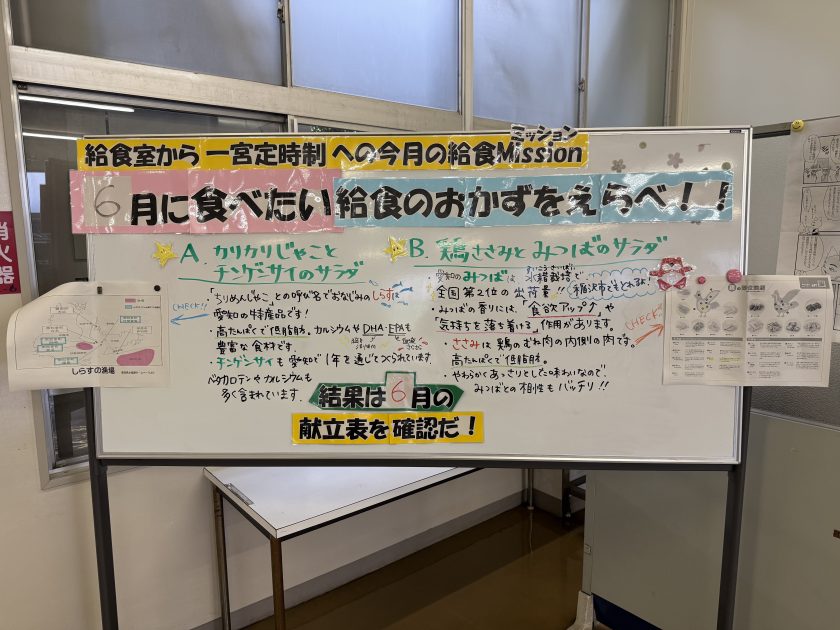 ミッション
給食室から 一宮定時制 への今月の給食Mission
6月に食べたい給食のおかずをえらべ！！
A. カリカリじゃこと
チンゲンサイのサラダ
「ちりめんじゃこ」との呼び名でおなじみのしらすは
愛知の特産品です！
・高たんぱくで低脂肪。カルシウムやDHA・EPAも
豊富な食材です。
・チンゲンサイも愛知で1年を通じてつくられています
バタカロテンやカルシウムも
多く含まれています。
CHECK!!
B. 鶏ささみとみつばのサラダ
・愛知のみつばは 水耕栽培で
すいこうさいばい
全国第2位の出荷量!!
稲沢市でもとれるよ!
・みつばの香りには、「食欲アップ↑」や
「気持ちを落ち着ける」作用があります。
・ささみは鶏のむね肉の内側の肉です。
高たんぱくで低脂肪。
・やわらかくあっさりとした味わいなので、
みつばとの相性もバッチリ!!
CHECK!
結果は6月の
献立表を確認だ！
しらすの漁場
消火器